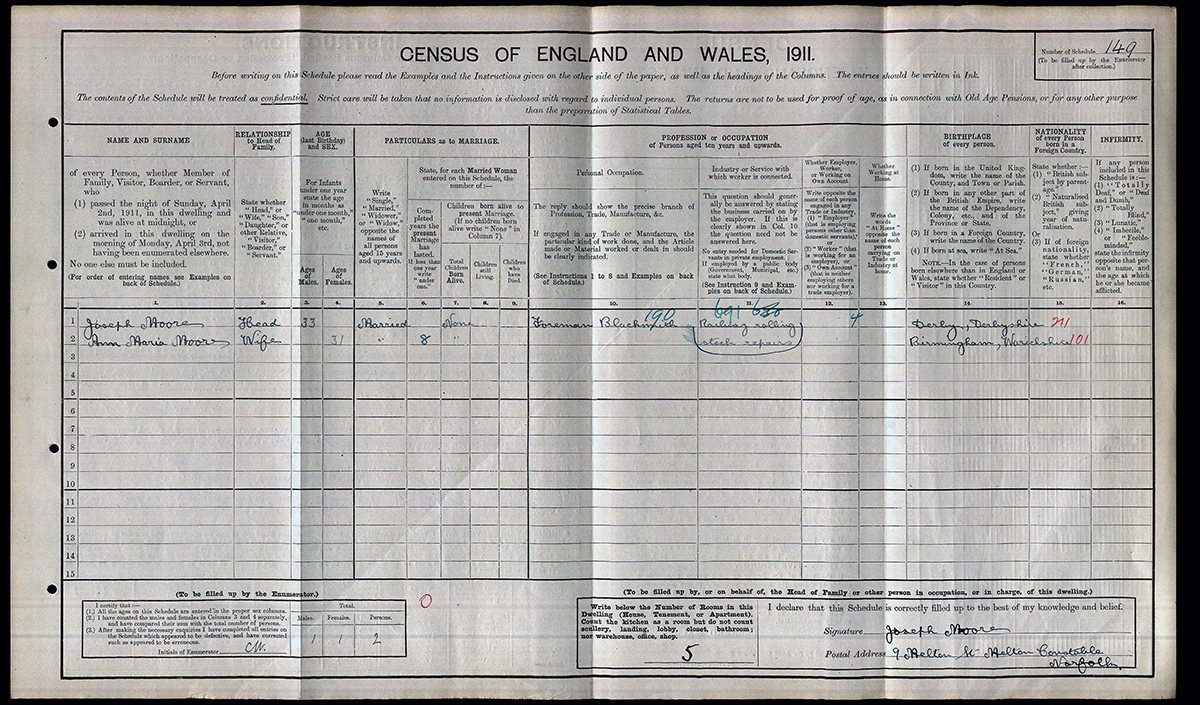 CENSUS OF ENGLAND AND WALES, 1911.
Number of Schedule 149
(To be filled up by the Enumerator
after collection.)
Before writing on this Schedule please read the Examples and the Instructions given on the other side of the paper, as well as the headings of the Columns. The entries should be written in Ink.
The contents of the Schedule will be treated as confidential. Strict care will be taken that no information is disclosed with regard to individual persons. The returns are not to be used for proof of age, as in connection with Old Age Pensions, or for any other purpose
than the preparation of Statistical Tables.
NAME AND SURNAME
of every Person, whether Member of
Family, Visitor, Boarder, or Servant,
who
(1) passed the night of Sunday, April
2nd, 1911, in this dwelling and
was alive at midnight, or
(2) arrived in this dwelling on the
morning of Monday, April 3rd, not
having been enumerated elsewhere.
No one else must be included.
(For order of entering names see Examples on
back of Schedule.)
RELATIONSHIP
to Head of
Family.
State whether
"Head," or
"Wife," "Son,"
"Daughter," or
other Relative,
"Visitor,"
"Boarder," or
"Servant."
AGE
(last Birthday)
and SEX.
For Infants
under one year
state the age
in months as
"under one month,"
"one month,"
etc.
Ages
of
Males.
Ages
of
Females.
PARTICULARS as to MARRIAGE.
Write
"Single,"
"Married,"
"Widower,"
or "Widow,"
opposite the
names of
all persons
aged 15 years
and upwards.
State, for each Married Woman
entered on this Schedule, the
number of:—
Completed
years the
present
Marriage
has
lasted.
If less than
one year
write
"under
one."
Children born alive to
present Marriage.
(If no children born
alive write "None" in
Column 7).
Total
Children
Born
Alive.
Children
still
Living.
Children
who
have
Died.
PROFESSION or OCCUPATION
of Persons aged ten years and upwards.
Personal Occupation.
The reply should show the precise branch of
Profession, Trade, Manufacture, &c.
If engaged in any Trade or Manufacture, the
particular kind of work done, and the Article
made or Material worked or dealt in should
be clearly indicated.
(See Instructions 1 to 8 and Examples on back
of Schedule.)
Industry or Service with
which worker is connected.
This question should generally
be answered by stating
the business carried on by
the employer. If this is
clearly shown in Col. 10
the question need not be
answered here.
No entry needed for Domestic Servants
in private employment.
If employed by a public body
(Government, Municipal, etc.)
state what body.
(See Instruction 9 and Examples
on back of Schedule.)
Whether Employer,
Worker,
or Working on
Own Account.
Write opposite the
name of each person
engaged in any
Trade or Industry,
(1) "Employer"
(that is employing
persons other than
domestic servants),
or
(2) "Worker" (that
is working for an
employer), or
(3) "Own Account"
(that is neither
employing others
nor working for a
trade employer).
Whether
Working at
Home.
Write the
words
"At Home"
opposite the
name of each
person
carrying on
Trade or
Industry at
home.
BIRTHPLACE
of every person.
(1) If born in the United Kingdom,
write the name of the
County, and Town or Parish.
(2) If born in any other part of
the British Empire, write
the name of the Dependency,
Colony, etc., and of the
Province or State.
(3) If born in a Foreign Country,
write the name of the Country.
(4) If born at sea, write "At Sea."
NOTE.—In the case of persons
born elsewhere than in England or
Wales, state whether "Resident" or
"Visitor" in this Country.
NATIONALITY
of every Person
born in a
Foreign Country.
State whether:—
(1) "British subject
by parentage."
(2) "Naturalised
British subject,"
giving
year of naturalisation.
Or
(3) If of foreign
nationality,
state whether
"French,"
"German,"
"Russian,"
etc.
INFIRMITY.
If any person
included in this
Schedule is:—
(1) "Totally
Deaf," or "Deaf
and Dumb,"
(2) "Totally
Blind,"
(3) "Lunatic,"
(4) "Imbecile,"
or "Feeble-minded,"
state the infirmity
opposite that person's
name, and
the age at which
he or she became
afflicted.
1. 2. 3. 4. 5. 6. 7. 8. 9. 10. 11. 12. 13. 14. 15. 16.
190 691 680
1 Joseph Moore Head 33 Married None Foreman Blacksmith Railway rolling 4 Derby, Derbyshire 211
2 Ann Maria Moore Wife 31 " 8 " stock repairs Birmingham, Warickshire 101
3
4
5
6
7
8
9
10
11
12
13
14
15
(To be filled up by the Enumerator.)
I certify that:—
(1.) All the ages on this Schedule are entered in the proper sex columns.
(2.) I have counted the males and females in Columns 3 and 4 separately,
and have compared their sum with the total number of persons.
(3.) After making the necessary enquiries I have completed all entries on
the Schedule which appeared to be defective, and have corrected
such as appeared to be erroneous.
Initials of Enumerator
Total.
Males. Females. Persons.
1 1 2
0
(To be filled up by, or on behalf of, the Head of Family or other person in occupation, or in charge, of this dwelling.)
Write below the Number of Rooms in this
Dwelling (House, Tenement, or Apartment).
Count the kitchen as a room but do not count
scullery, landing, lobby, closet, bathroom;
nor warehouse, office, shop.
5
I declare that this Schedule is correctly filled up to the best of my knowledge and belief.
Signature Joseph Moore
Postal Address 9 Melton St Melton Constable
Norfolk.